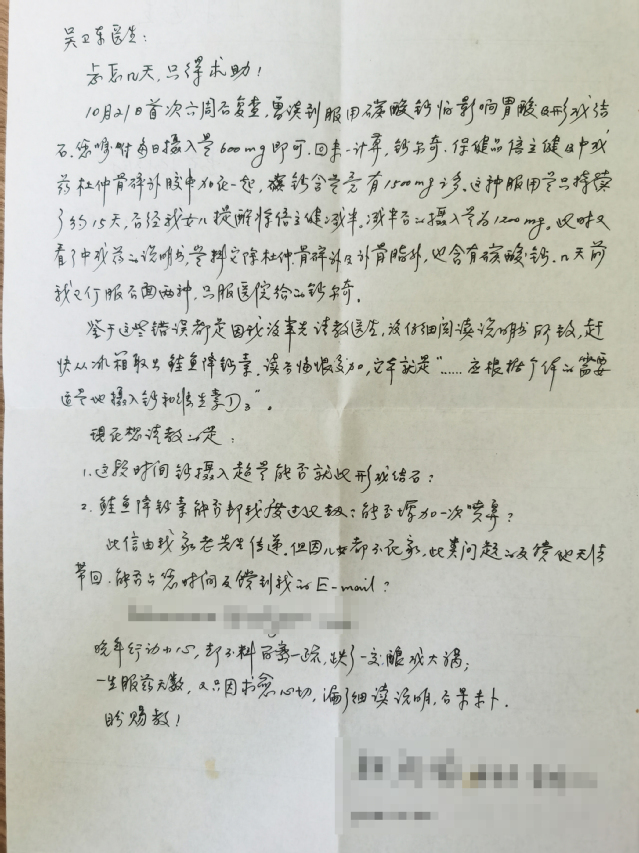 吴卫东医生:
忐忑几天,只得求助!
10月21日首次六周后复查,曾谈到服用碳酸钙恰影响胃酸及形成结
石.您嘱咐每日摄入量600mg即可.回来一计算,钙尔奇.保健品倍立健及中成
药杜仲骨碎补胶中加在一起,碳钙含量竟有1500mg之多.这种服用量只持续
了约15天,后经我女儿提醒将倍立健减半.减半后的摄入量为1200mg.此时又
看了中成药的说明书,岂料它除杜仲.骨碎补及补骨脂外,也含有碳酸钙.几天前
我已停服后面两种.只服医院给的钙尔奇.
鉴于这些错误都是因我没事先请教医生,没仔细阅读说明书所致,赶
快从冰箱取出鲑鱼降钙素.读后悔恨交加,它本就是"……应根据个体的需要
适量地摄入钙和维生素D3".
现在想请教的是:
1.这段时间钙摄入超量能否就此形成结石?
2.鲑鱼降钙素能否助我度过此劫?能否增加一次喷鼻?
此信由我家老先生传递.但因儿女都不在家,此类问题的反馈他无法
带回.能否占您时间反馈到我的E-mail?
晚年行动小心,却不料百密一疏,跌了一交酿成大祸;
一生服药无数,又只因求愈心切,漏了细读说明,后果未卜.
盼赐教!